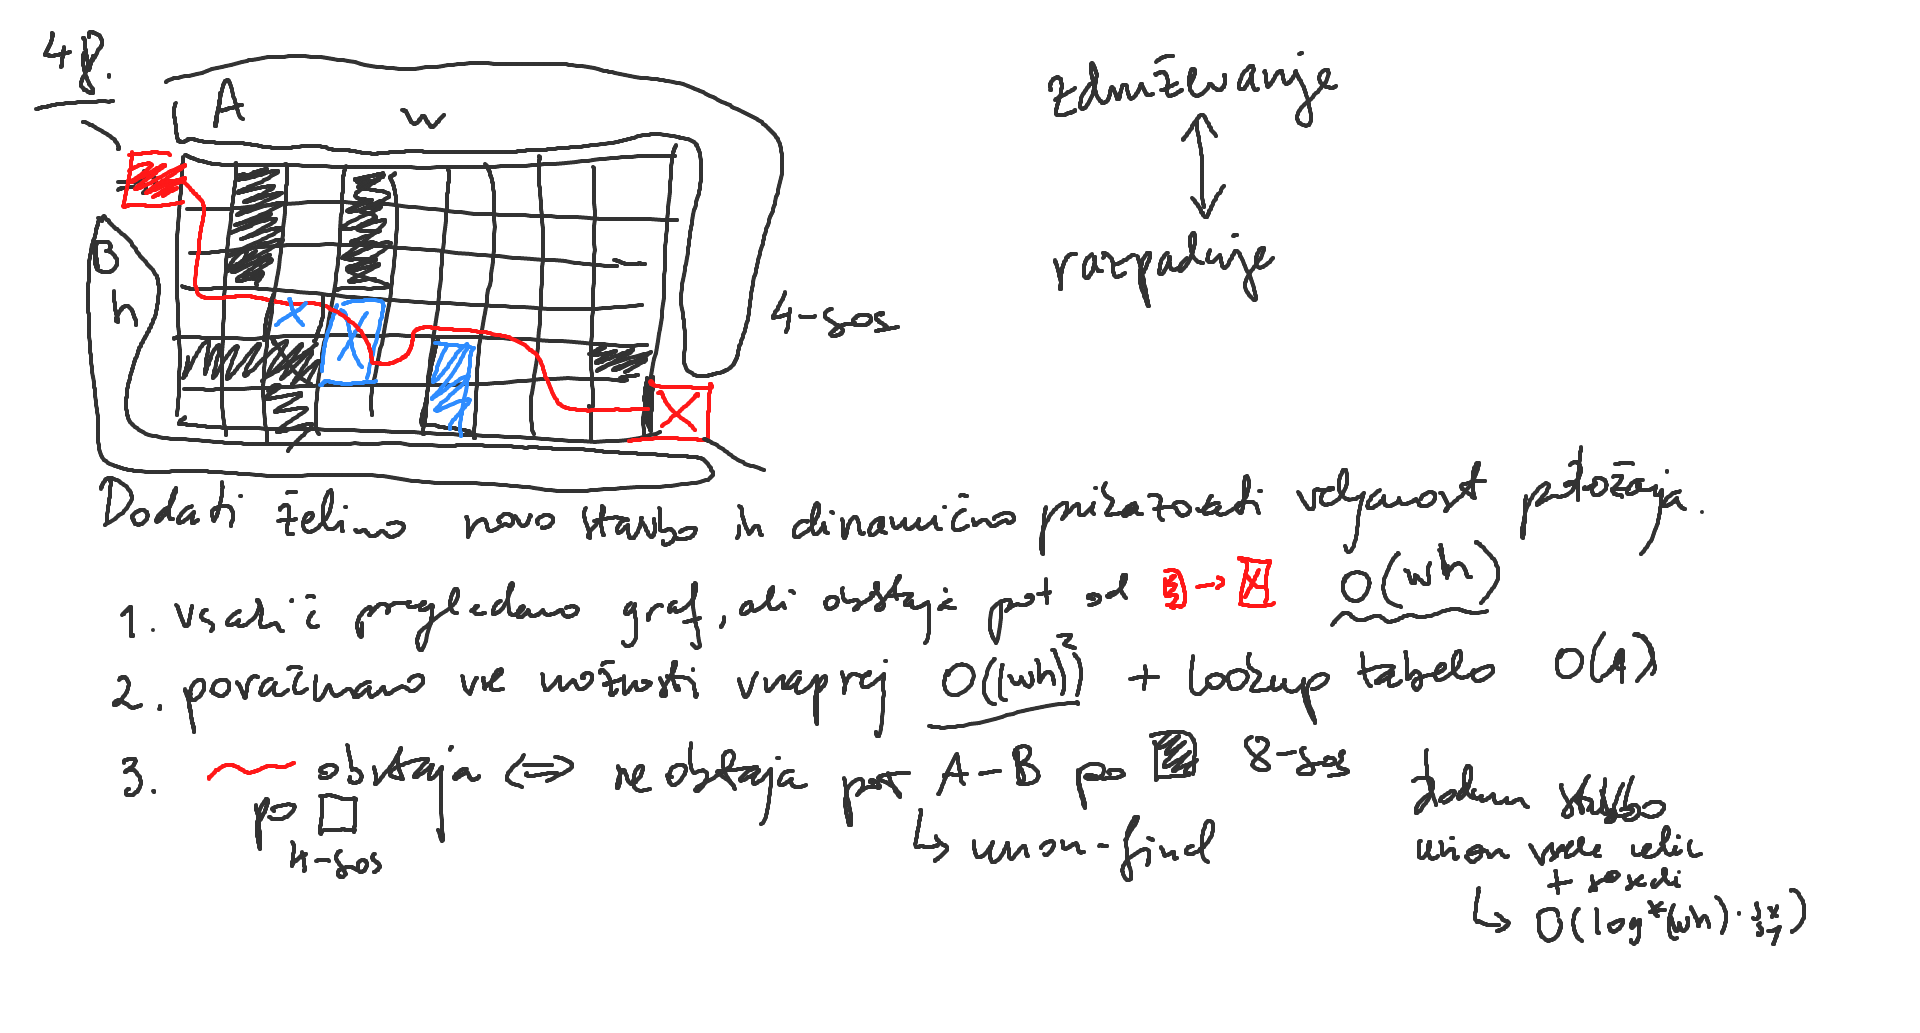 4p.
A
w
združevanje
B
h
razpadanje
4-sos
Dodati želimo novo stavbo in dinamično prikazovati veljavnost položaja.
1. vsakič pregledamo graf, ali obstaja pot od → O(wh)
2. poračunamo vse možnosti vnaprej O((wh)²) + lookup tabelo O(1)
3. obstaja ⇔ ne obstaja pot A-B po 8-sos
po □
4-sos
↳ union-find
dodam stavbo
union vseh celic
+ sosedi
↳ O(log*(wh) ·